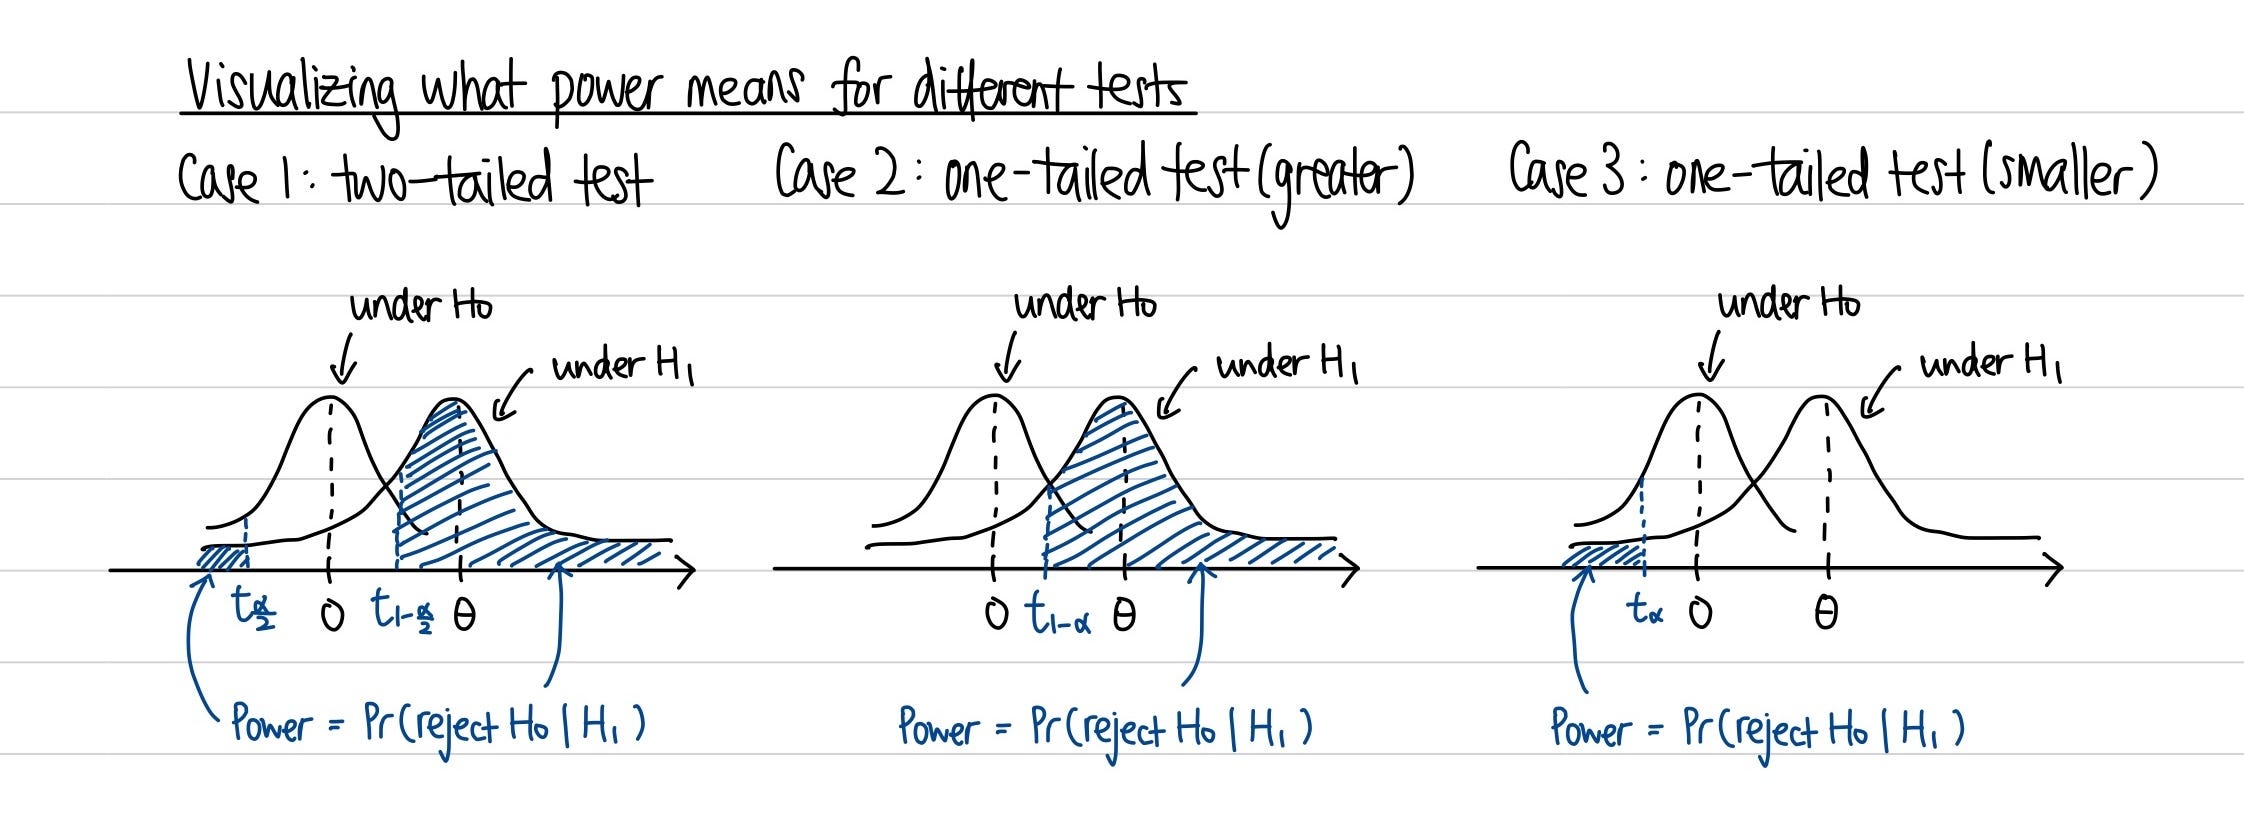 Visualizing what power means for different tests
Case 1: two-tailed test
under H₀
under H₁
t_{α/2} 0 t_{1-α/2} θ
Power = Pr(reject H₀ | H₁)
Case 2: one-tailed test (greater)
under H₀
under H₁
0 t_{1-α} θ
Power = Pr(reject H₀ | H₁)
Case 3: one-tailed test (smaller)
under H₀
under H₁
t_α 0 θ
Power = Pr(reject H₀ | H₁)